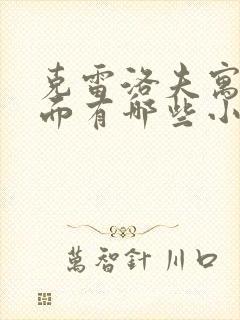 克雷洛夫寓
而有哪些小
萬智針 川口